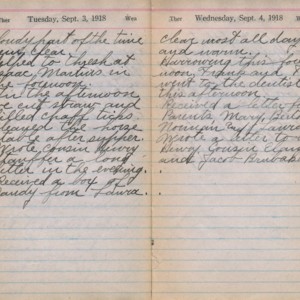 Ther Tuesday, Sept. 3, 1918 Wea
cloudy part of the time
clear
helped to thresh at
Isaac Martins in
the forenoon
In the afternoon
we cut straw and
filled chaff ticks
cleaned the house
late after supper
Wrote Cousin Henry
Shauffer a long
letter in the evening.
Received a box of
candy from Laura.
Ther Wednesday, Sept. 4, 1918
clear most all day
and warm.
Harrowing this fore
noon, Frank and
went to the dentist
this afternoon
Received a letter
Parents, Mary,
Norman
Wrote a letter to
Henry, Cousin
and Jacob Brubaker